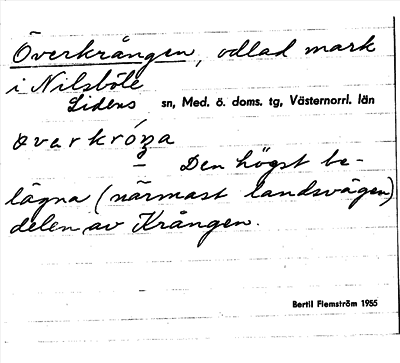 Överkrången, odlad mark
i Nilsböle
Lidens sn, Med. ö. doms. tg, Västernorrl. län
Den högst be-
lägna (närmast landsvägen)
delen av Krången.
Bertil Flemström 1955